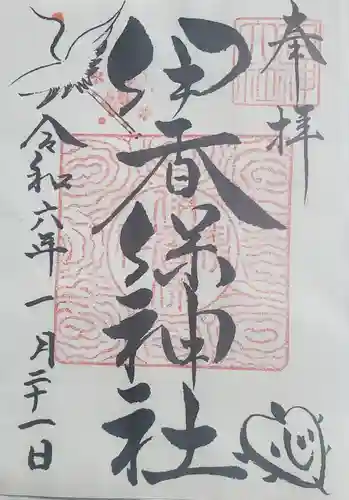 奉拝
伊香保神社
令和六年一月二十一日
心